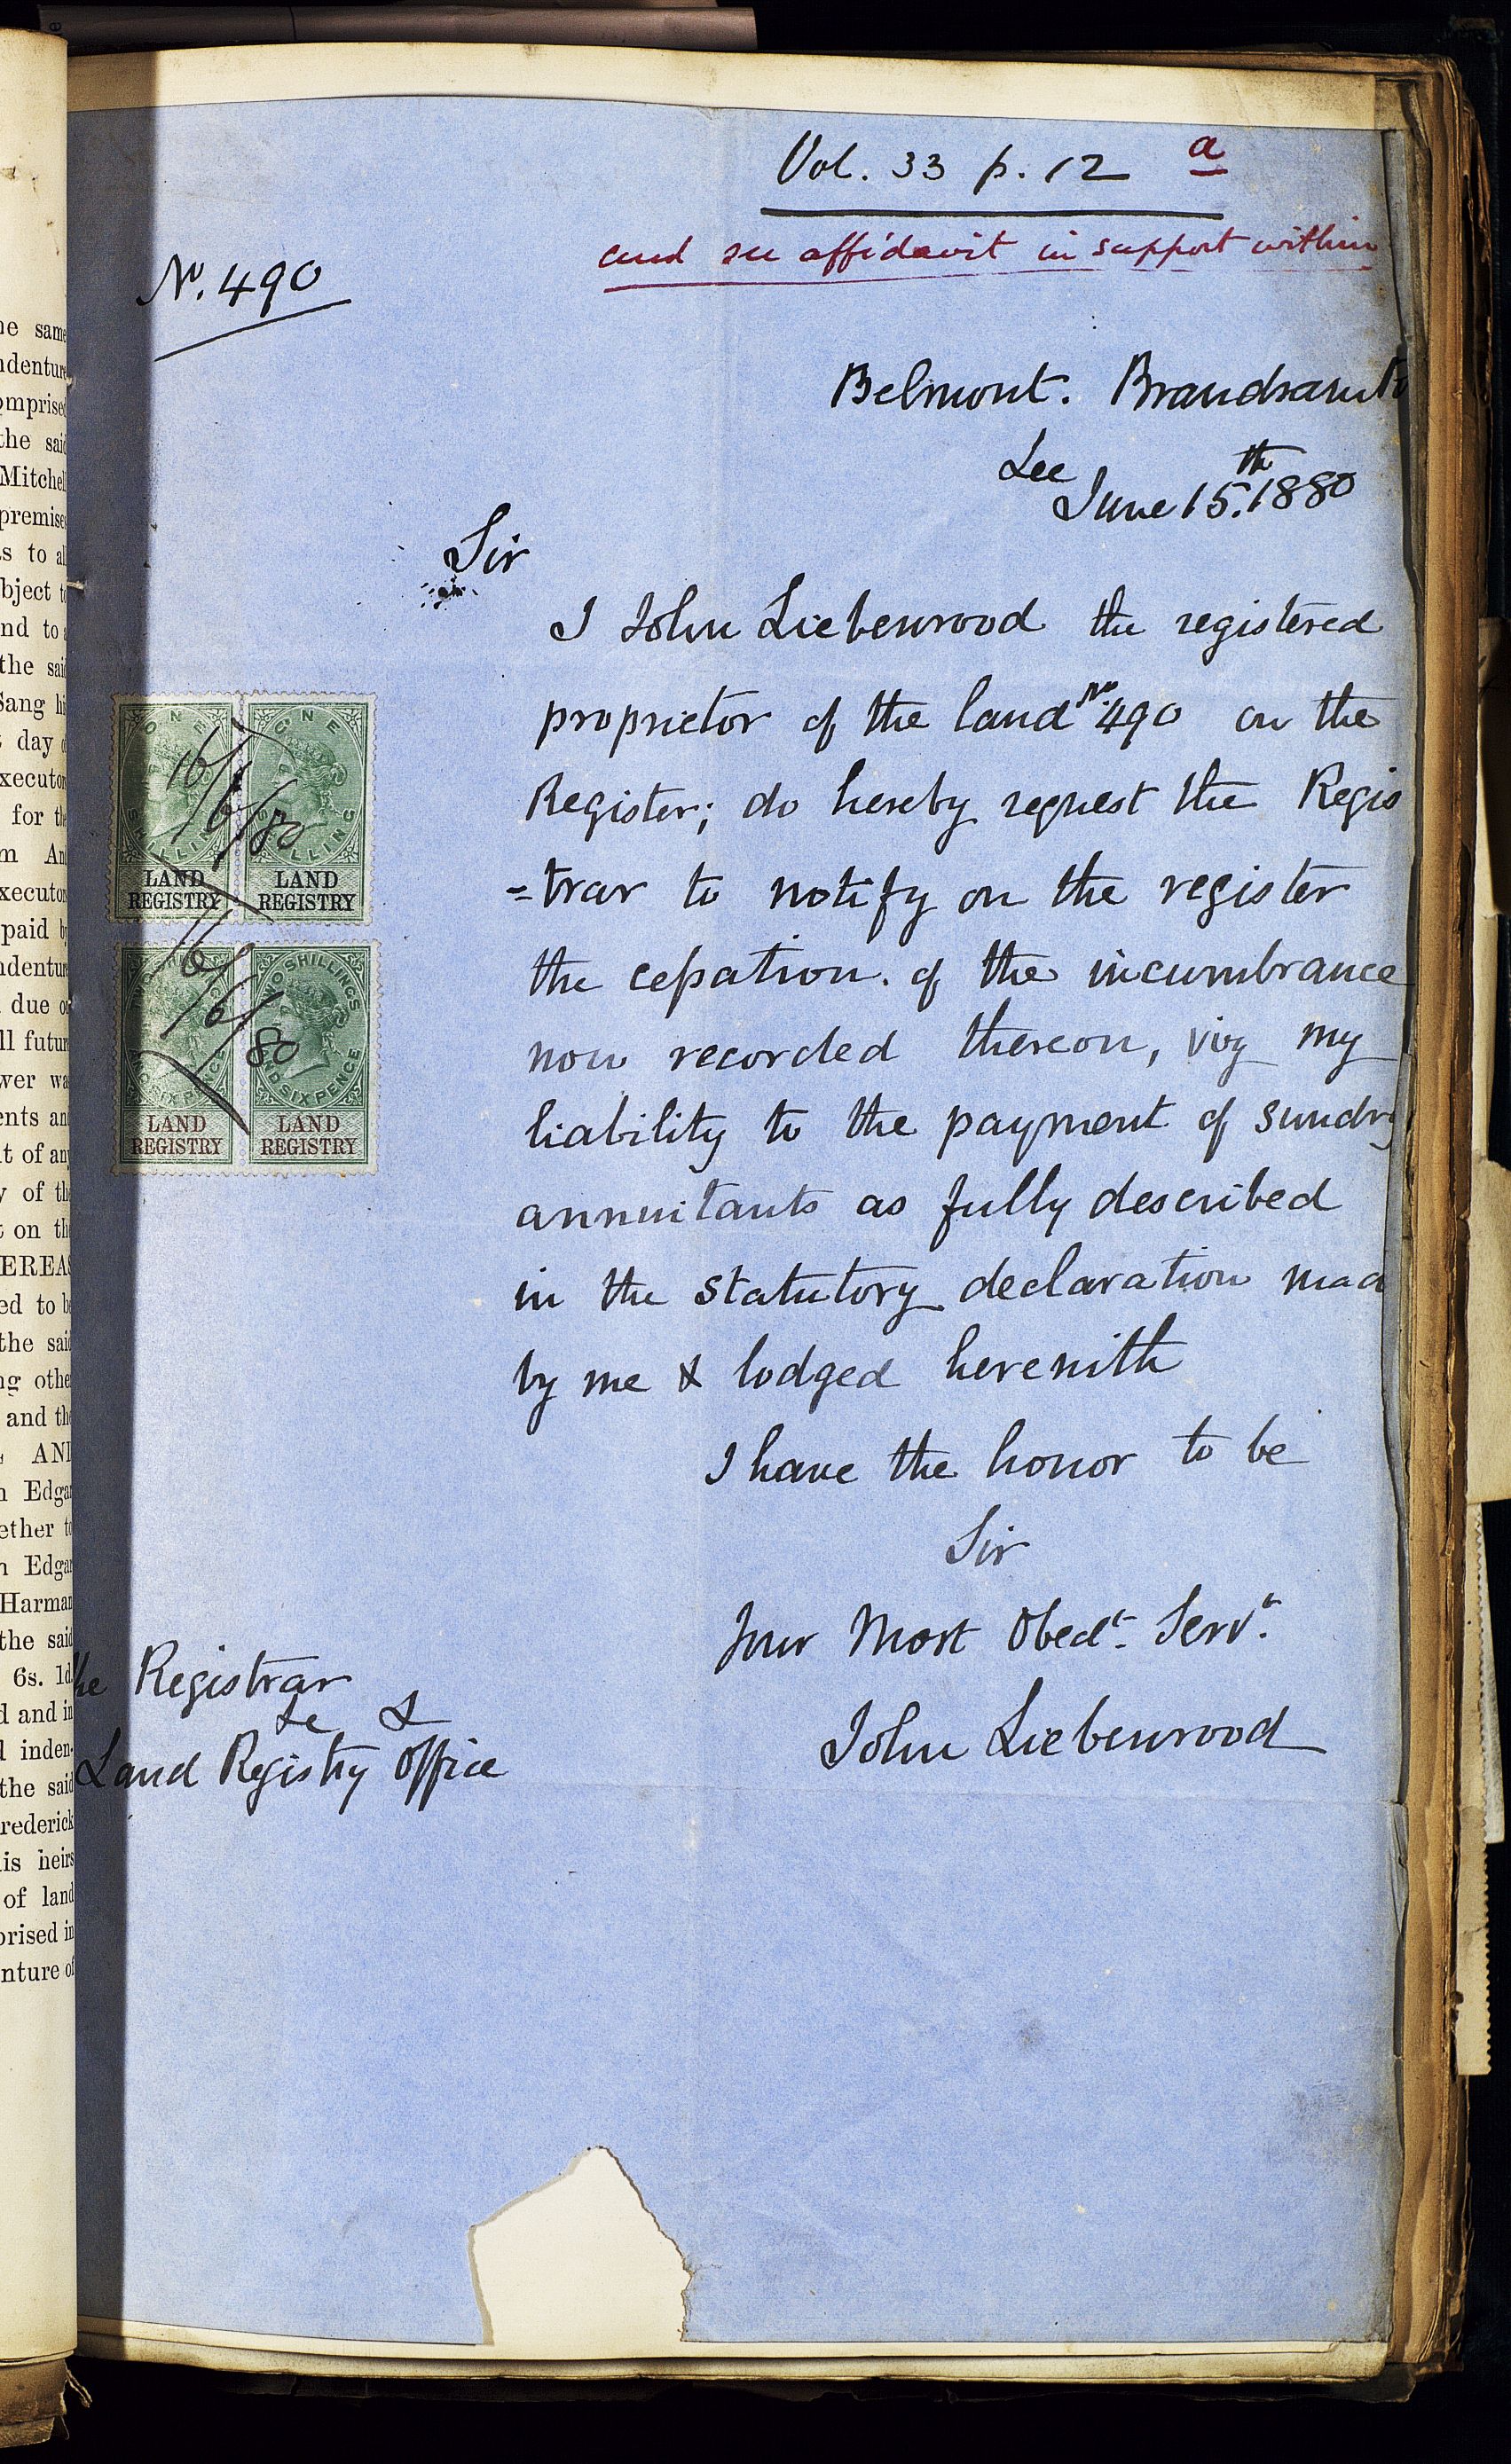 Vol. 33 p. 12 a
and see affidavit in support within
No. 490
Belmont. Brandram R
Lee
June 15th. 1880
Sir
I John Liebenrood the registered
proprietor of the land No. 490 on the
Register; do hereby request the Regis
=trar to notify on the register
the cessation. of the incumbrance
now recorded thereon, viz my
liability to the payment of sundry
annuitants as fully described
in the statutory declaration mad
by me & lodged herewith
I have the honor to be
Sir
Your Most Obedt. Servt.
John Liebenrood
he Registrar
&c &
Land Registry Office
ONE SHILLING
LAND REGISTRY
ONE SHILLING
LAND REGISTRY
16/6/80
TWO SHILLINGS AND SIXPENCE
LAND REGISTRY
TWO SHILLINGS AND SIXPENCE
LAND REGISTRY
16/6/80
he same
ndenture
omprised
the said
Mitchell
premises
s to all
bject to
nd to
the said
Sang hi
day o
xecutor
for the
m An
xecutor
paid by
ndenture
due on
ll futur
wer wa
ents an
t of any
y of the
on th
EREAS
ed to be
the said
ng other
and the
AND
n Edgar
ether to
n Edgar
Harman
the said
6s. 1d.
d and in
inden-
the said
rederick
is heirs
of land
prised in
nture of